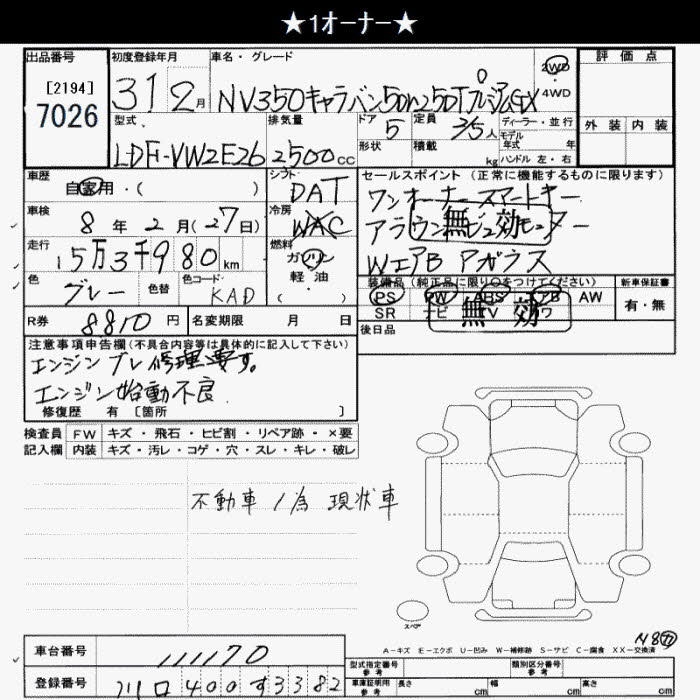 ★1オーナー★
出品番号 初度登録年月 車名・グレード 評価点
[2194]
7026
31年2月 NV350キャラバン5Dバン2.5DTプレミアムGX 2WD・4WD
型式 排気量 ドア 5 定員 3/5人 ディーラー・並行 外装 内装
LDF-VW2E26 2500cc 形状 積載 kg モデル年式 年 ハンドル 左・右
車歴 シフト セールスポイント (正常に機能するものに限ります)
自家用・( ) DAT ワンオーナー スマートキー
車検 8年2月(27日) 冷房 WAC アラウンドビューモニター
無効
走行 15万3千980km 燃料 ガソリン・軽油 ( ) WエアB アガラス
色 グレー 色替 色コード KAD 装備品 (純正品に限り〇をつけてください) 新車保証書
PS PW ABS AB AW 有・無
SR ナビ TV カワ
無効
R券 8810円 名変期限 月 日 後日品
注意事項申告欄(不具合内容等は具体的に記入して下さい)
エンジンブレ修理要す。
エンジン始動不良
修復歴 有 [箇所 ]
検査員 FW キズ・飛石・ヒビ割・リペア跡・×要
記入欄 内装 キズ・汚レ・コゲ・穴・スレ・キレ・破レ
不動車ノ為 現状車
スペア
A-キズ E-エクボ U-凹み W-補修跡 S-サビ C-腐食 XX-交換済
車台番号 111170 型式指定番号 参考 類別区分番号 参考
登録番号 川口400す3382 車庫証明用 参考 長さ cm 幅 cm 高さ cm